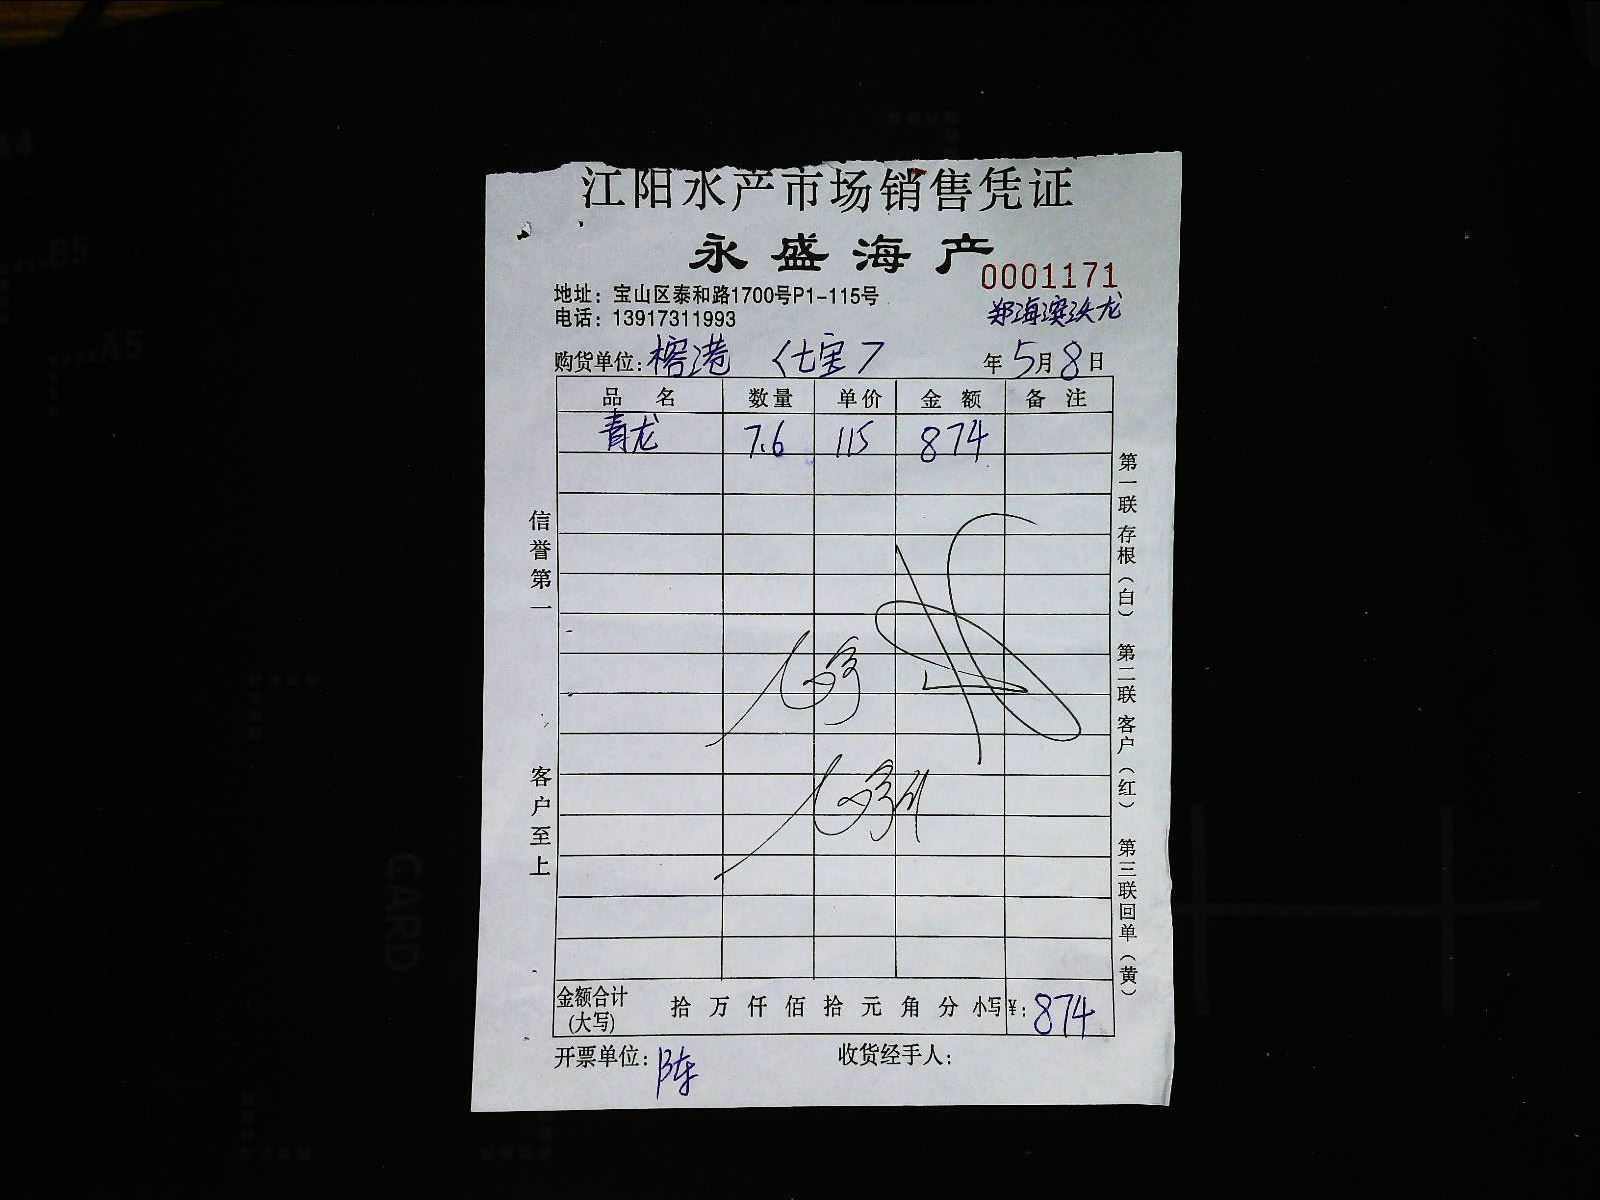 江阳水产市场销售凭证
永盛海产
0001171
地址：宝山区泰和路1700号P1-115号
电话：13917311993
购货单位：榕港 年5月8日
品 名 数量 单价 金 额 备 注
青龙 7.6 115 874
信誉第一 客户至上
第一联 存根（白） 第二联 客户（红） 第三联 回单（黄）
金额合计(大写) 拾 万 仟 佰 拾 元 角 分 小写¥：874
开票单位：陈 收货经手人：
A4
B5
A5
CARD